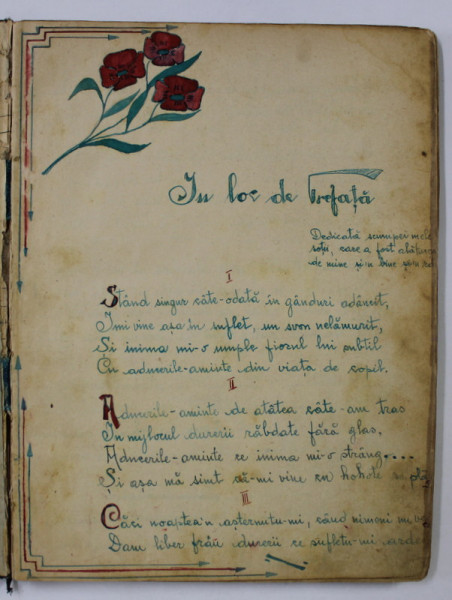 In loc de Prefață
Dedicată scumpei mele
soții, care a fost alăturea
de mine și-n bine și-n rău
I
Stând singur câte-odată în gânduri adâncit,
Îmi vine așa în suflet, un svon nelămurit,
Și inima mi-o umple fiorul lui subtil
Cu aducerile-aminte din viața de copil.
II
Aducerile-aminte de atâtea câte-am tras
În mijlocul durerii răbdate fără glas,
Aducerile-aminte ce inima mi-o strâng....
Și așa mă simt să-mi vine cu hohote să plâ
III
Căci noaptea'n așternutu-mi, când nimeni nu
Dam liber frâu durerii ce sufletu-mi arde